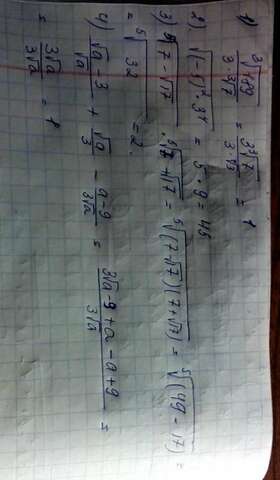 1) ∛189 / 3·∛7 = 3∛7 / 3·∛7 = 1
2) √(-5)²·3⁴ = 5·9 = 45
3) ⁵√7-√17 · ⁵√7+√17 = ⁵√(7-√17)(7+√17) = ⁵√(49-17) =
= ⁵√32 = 2.
4) √a-3 / √a + √a / 3 - a-9 / 3√a = 3√a-9+a-a+9 / 3√a =
= 3√a / 3√a = 1